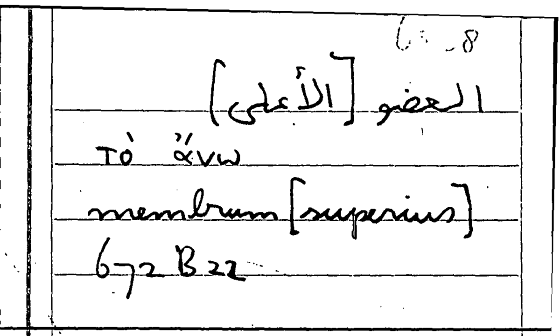 العضو [الأعلى]
τὸ ἄνω
membrum [superius]
672 B 22